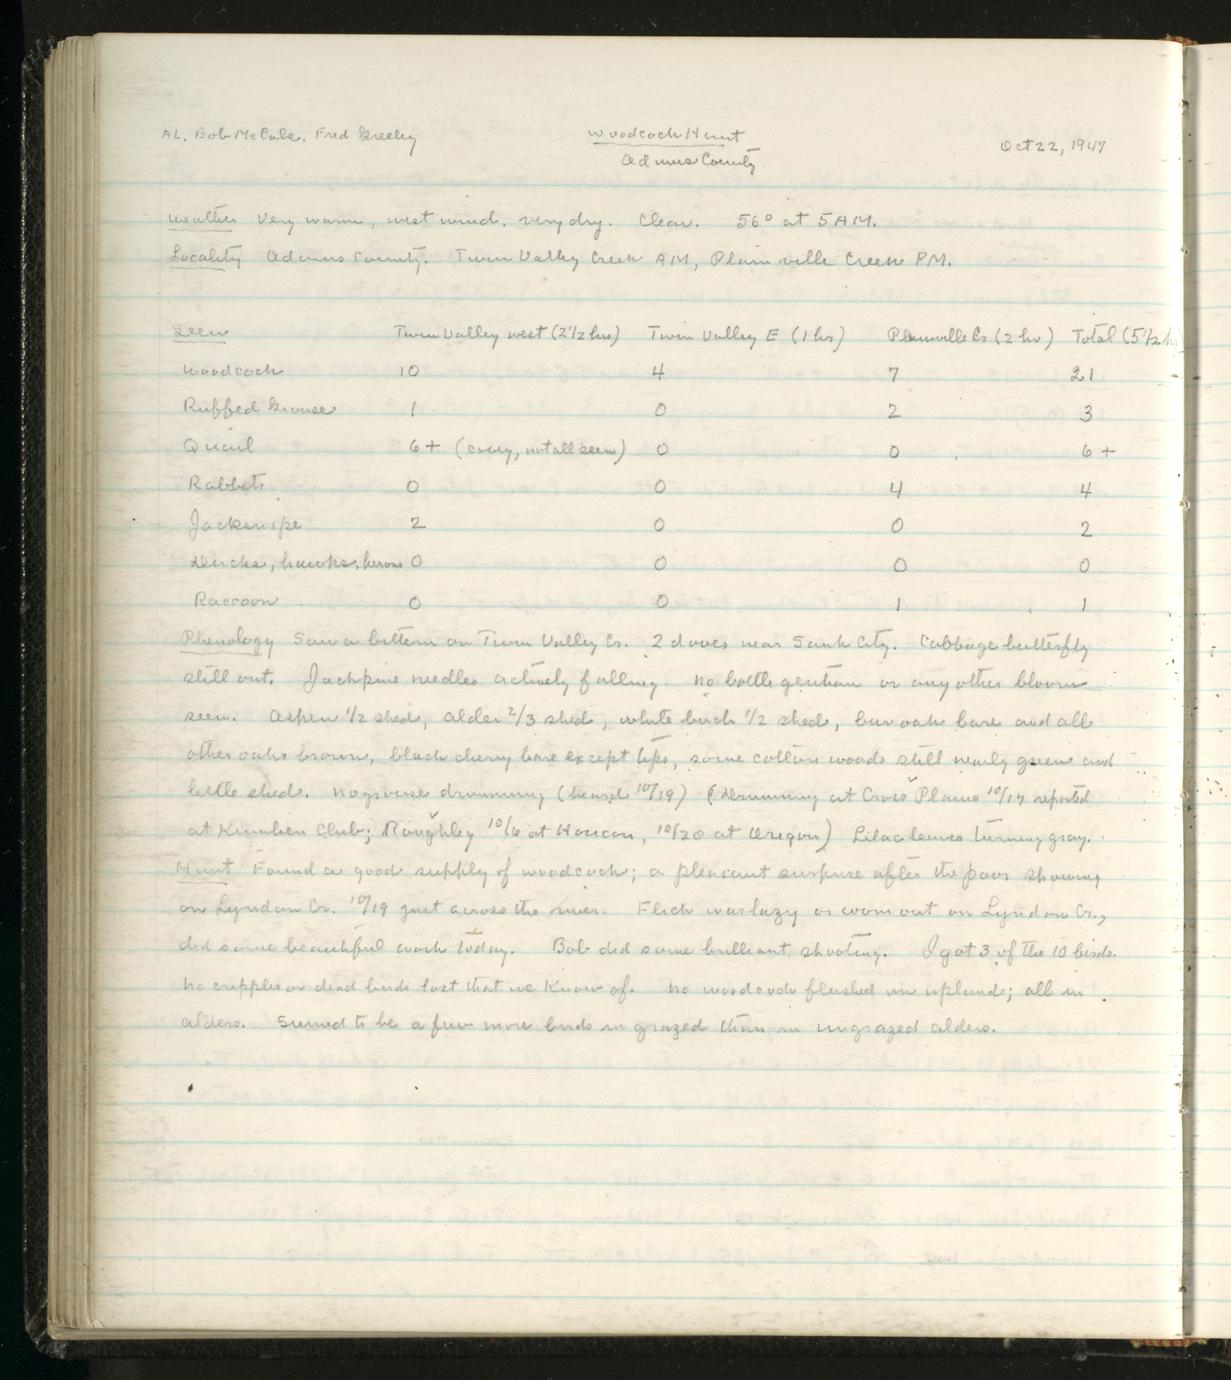 AL. Bob McCabe, Fred Greeley Woodcock Hunt Oct 22, 1947
Adams County
Weather Very warm, west wind, very dry. Clear. 56° at 5 AM.
Locality Adams County. Twin Valley Creek AM, Plainville Creek PM.
Seen Twin Valley west (2 1/2 hrs) Twin Valley E (1 hr) Plainville Cr (2 hr) Total (5 1/2 h
Woodcock 10 4 7 21
Ruffed Grouse 1 0 2 3
Quail 6+ (covey, not all seen) 0 0 6+
Rabbits 0 0 4 4
Jacksnipe 2 0 0 2
Ducks, hawks, herons 0 0 0 0
Raccoon 0 0 1 1
Phenology Saw a bittern on Twin Valley Cr. 2 doves near Sauk City. Cabbage butterfly
still out. Jackpine needles actively falling. No bottle gentian or any other bloom
seen. Aspen 1/2 shed, alder 2/3 shed, white birch 1/2 shed, bur oak bare and all
other oaks brown, black cherry bare except tips, some cottonwoods still nearly green and
little shed. No grouse drumming (heard 10/19) (Drumming at Cross Plains 10/17 reported
at Kumlien Club; Roughleg 10/6 at Horicon, 10/20 at Oregon) Lilac leaves turning gray.
Hunt Found a good supply of woodcock; a pleasant surprise after the poor showing
on Lyndon Cr. 10/19 just across the river. Flick was lazy or worn out on Lyndon Cr.,
did some beautiful work today. Bob did some brilliant shooting. I got 3 of the 10 birds.
No cripples or dead birds lost that we know of. No woodcock flushed on upland; all in
alders. Seemed to be a few more birds in grazed than in ungrazed alders.